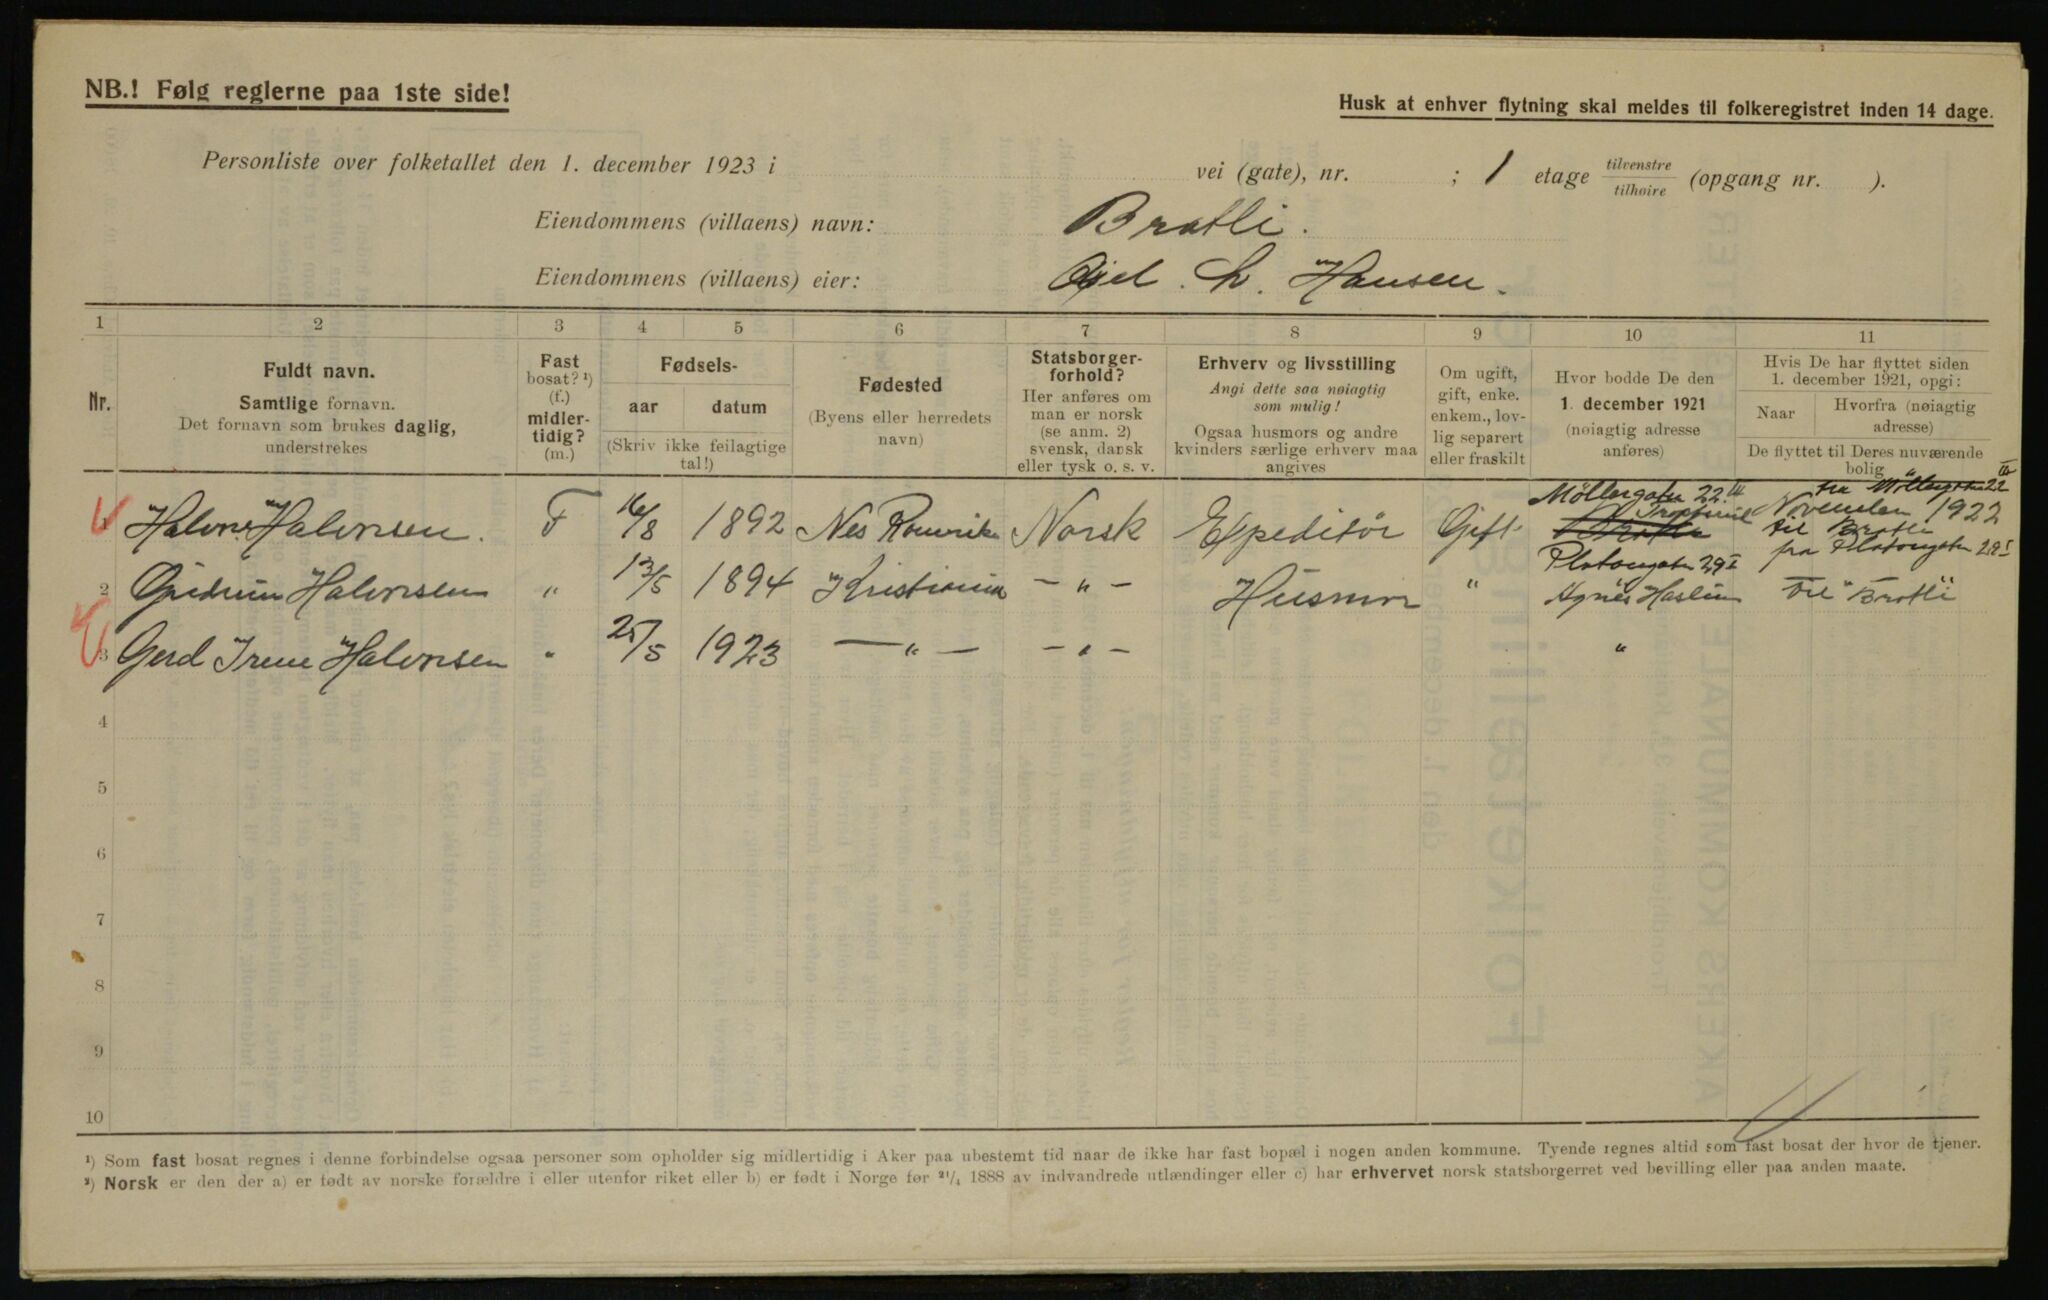 NB.! Følg reglerne paa 1ste side!
Husk at enhver flytning skal meldes til folkeregistret inden 14 dage.
Personliste over folketallet den 1. december 1923 i vei (gate), nr. ; 1 etage tilvenstre / tilhøire (opgang nr. ).
Eiendommens (villaens) navn: Bratli.
Eiendommens (villaens) eier: Axel. Hansen.
1 2 3 4 5 6 7 8 9 10 11
Nr.
Fuldt navn.
Samtlige fornavn.
Det fornavn som brukes daglig,
understrekes
Fast
bosat? ¹)
(f.)
midler-
tidig?
(m.)
Fødsels-
aar datum
(Skriv ikke feilagtige
tal!)
Fødested
(Byens eller herredets
navn)
Statsborger-
forhold?
Her anføres om
man er norsk
(se anm. 2)
svensk, dansk
eller tysk o. s. v.
Erhverv og livsstilling
Angi dette saa nøiagtig
som mulig!
Ogsaa husmors og andre
kvinders særlige erhverv maa
angives
Om ugift,
gift, enke.
enkem., lov-
lig separert
eller fraskilt
Hvor bodde De den
1. december 1921
(nøiagtig adresse
anføres)
Hvis De har flyttet siden
1. december 1921, opgi:
Naar Hvorfra (nøiagtig
adresse)
De flyttet til Deres nuværende
bolig
fra Møllergaten 22 III
Møllergaten 22 III
1 Halvor Halvorsen. F 16/8 1892 Nes Romerike Norsk Expeditør Gift November 1922
til Bratli
Platousgaten 29 I fra Platousgaten 29 I
2 Gudrun Halvorsen " 13/5 1894 Kristiania — " — Husmor " Agnes Haslum til Bratli
3 Gerd Irene Halvorsen " 25/5 1923 — " — — " — "
4
5
6
7
8
9
10
¹) Som fast bosat regnes i denne forbindelse ogsaa personer som opholder sig midlertidig i Aker paa ubestemt tid naar de ikke har fast bopæl i nogen anden kommune. Tyende regnes altid som fast bosat der hvor de tjener.
²) Norsk er den der a) er født av norske forældre i eller utenfor riket eller b) er født i Norge før 21/4 1888 av indvandrede utlændinger eller c) har erhvervet norsk statsborgerret ved bevilling eller paa anden maate.